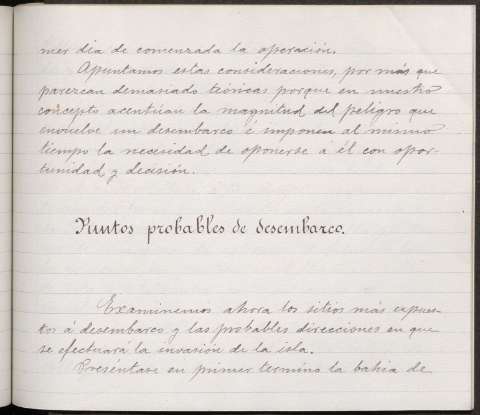 mer dia de comenzada la operación.
Apuntamos estas consideraciones, por más que
parezcan demasiado teóricas porque en nuestro
concepto acentúan la magnitud del peligro que
envuelve un desembarco é imponen al mismo
tiempo la necesidad de oponerse á él con opor-
tunidad y decisión.
Puntos probables de desembarco.
Examinemos ahora los sitios más expues-
tos á desembarco y las probables direcciones en que
se efectuará la invasión de la isla.
Preséntase en primer termino la bahia de